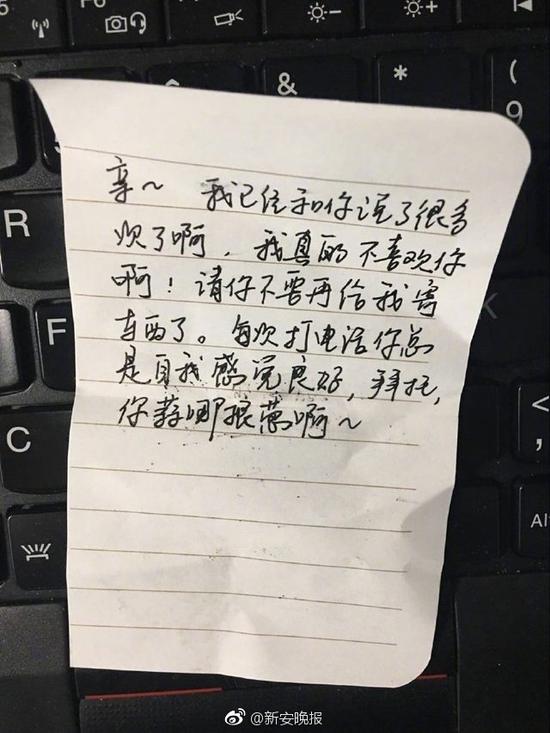 亲～ 我已经和你说了很多
次了啊，我真的不喜欢你
啊！请你不要再给我寄
东西了。每次打电话你总
是自我感觉良好，拜托，
你蒜哪根葱啊～
&
*
(
9
R
F
C
<
,
Alt
@新安晚报